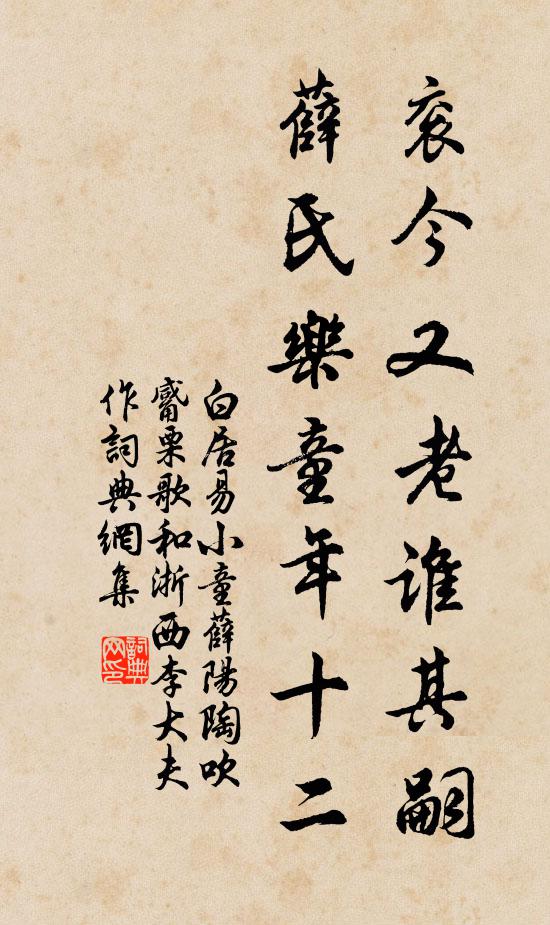 衮今又老誰其嗣
薛氏樂童年十二
白居易小童薛陽陶吹
觱栗歌和浙西李大夫
作詞典網集
詞典网印